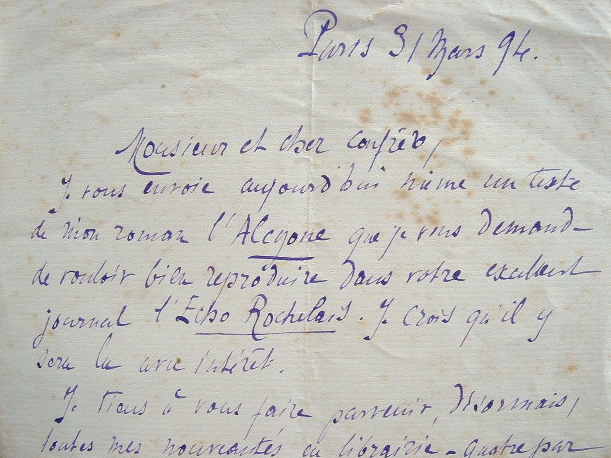 Paris 31 Mars 94.
Monsieur et cher confrère,
Je vous envoie aujourd'hui même un texte
de mon roman l'Alcyone que je vous demand-
de vouloir bien reproduire dans votre excellent
journal l'Echo Rochelais. Je crois qu'il y
sera lu avec intérêt.
Je tiens à vous faire parvenir, désormais,
toutes mes nouveautés en librairie - quatre par